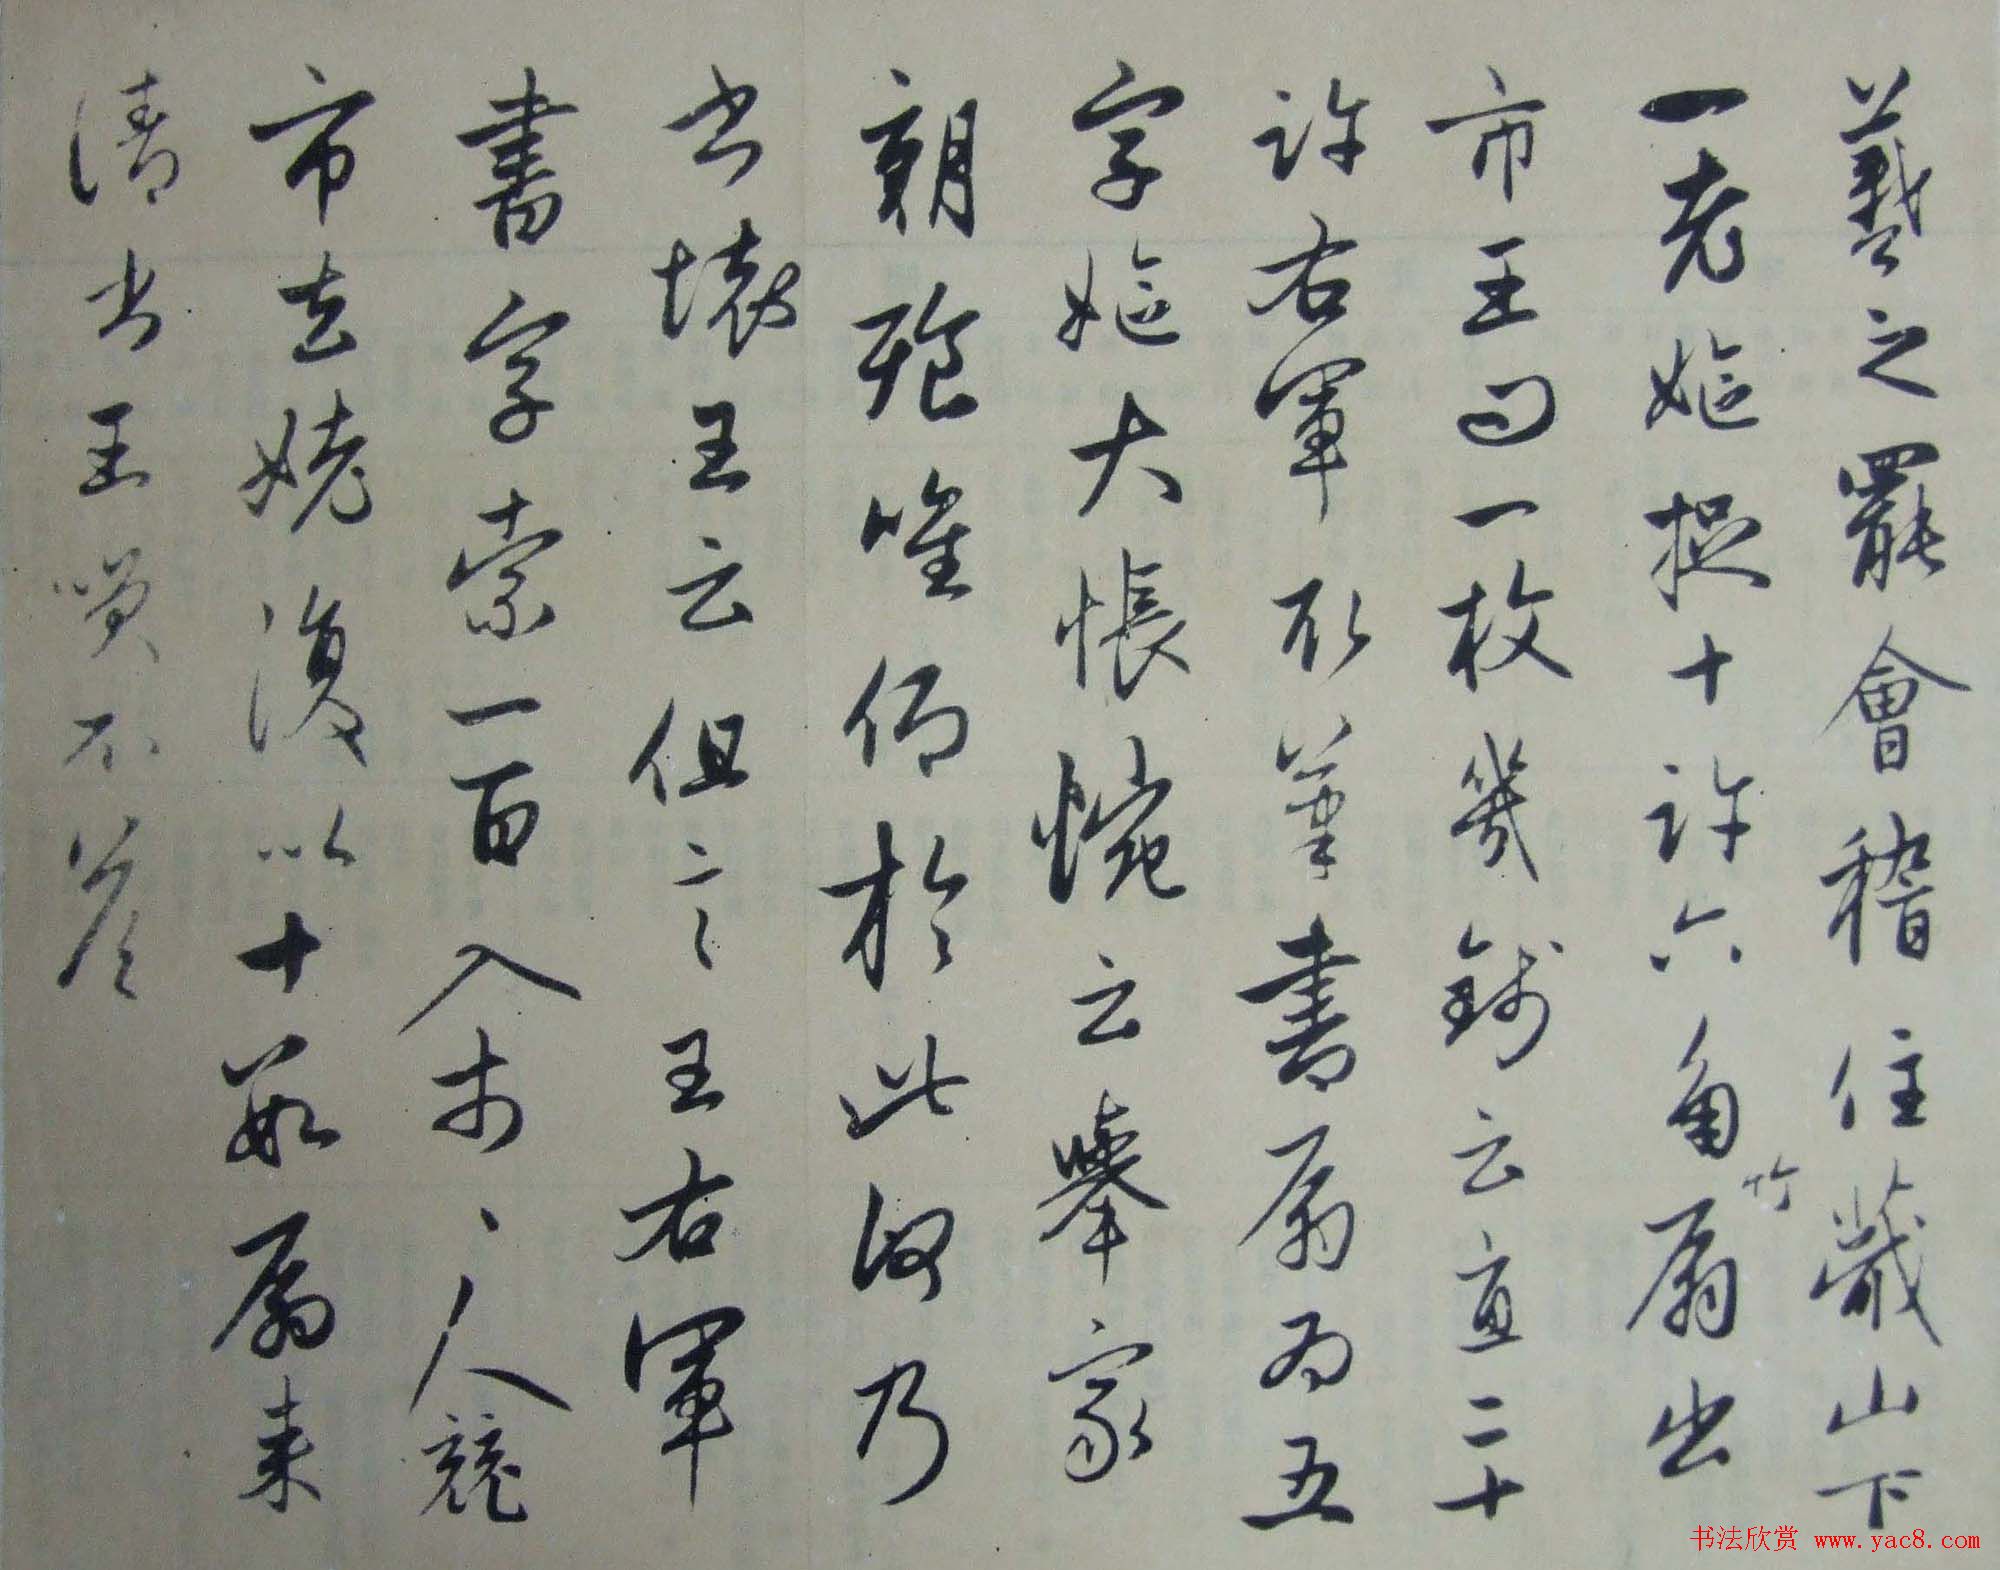 羲之罷會稽住蕺山下
一老嫗捉十許六角竹扇出
市王問一枚幾錢云直二十
許右軍取筆書扇為五
字嫗大悵惋云舉家
朝飡唯仰於此何乃
書壞王云但言王右軍
書字索一百入市市人競
市去姥復以十數扇来
請書王笑不答
书法欣赏 www.yac8.com